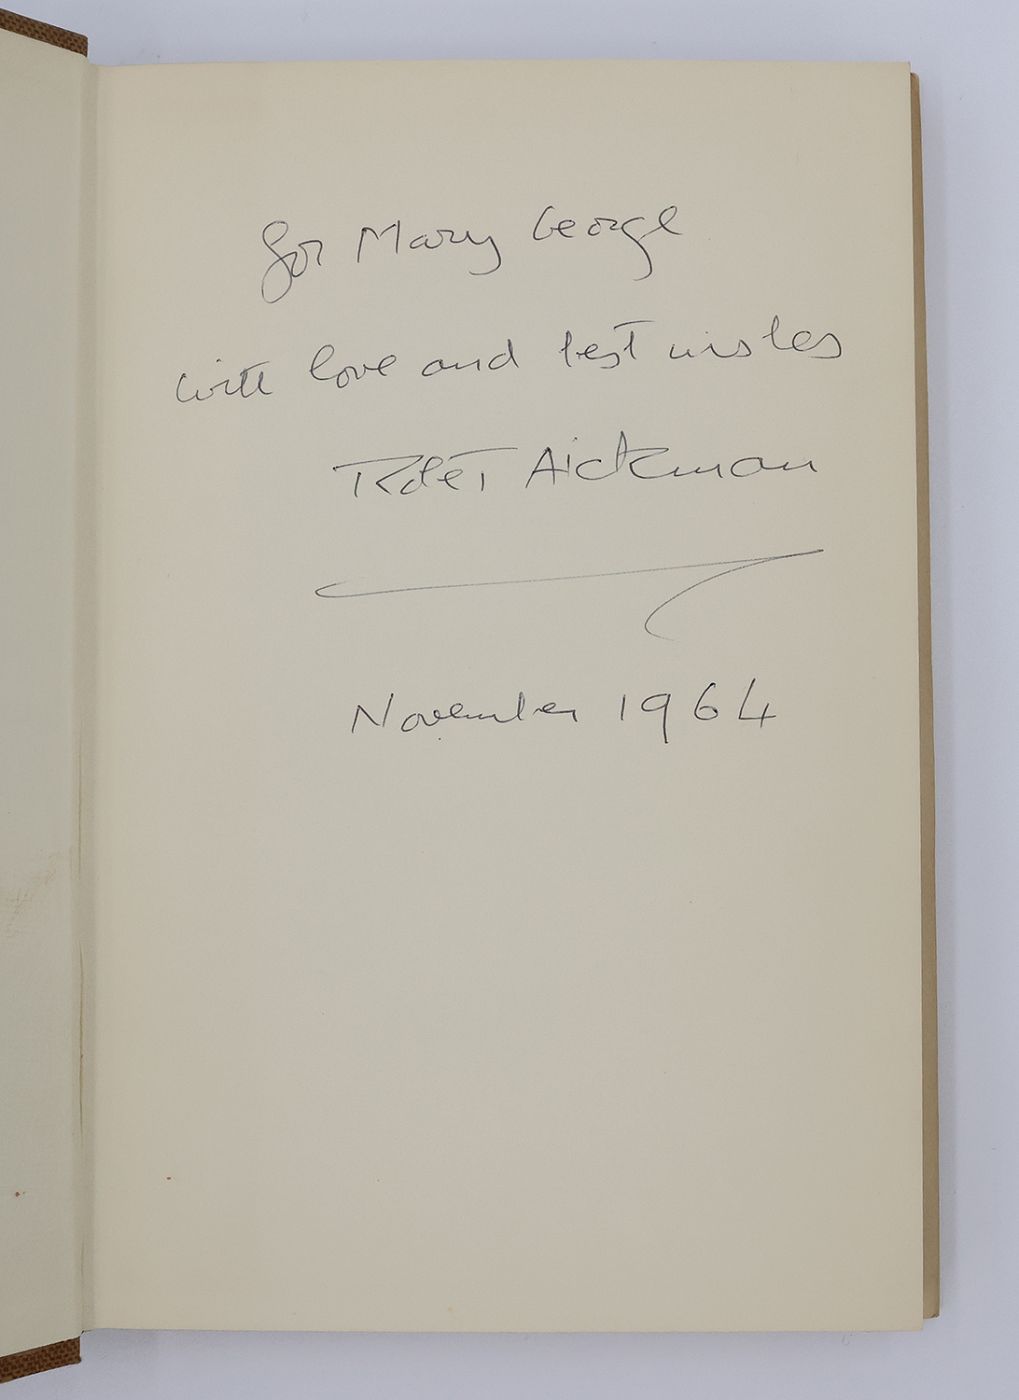 for Mary George
with love and best wishes
Robert Aickman
November 1964